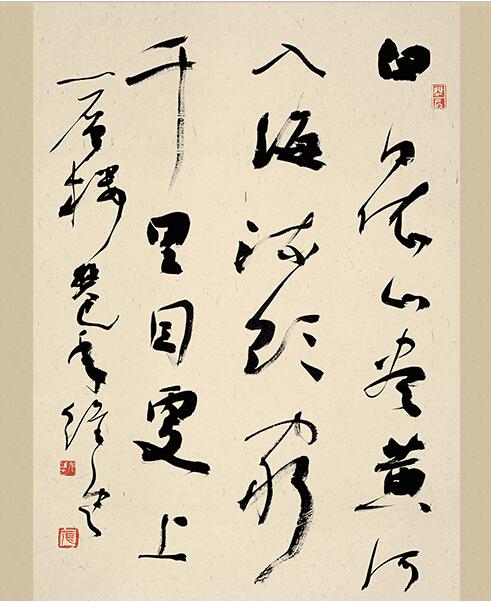 白日依山尽黄河
入海流欲穷
千里目更上
一层楼